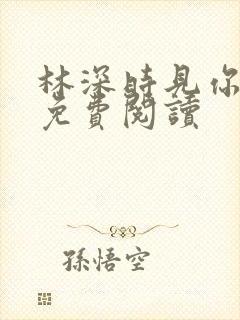 林深時見你
免費閱讀
孫悟空